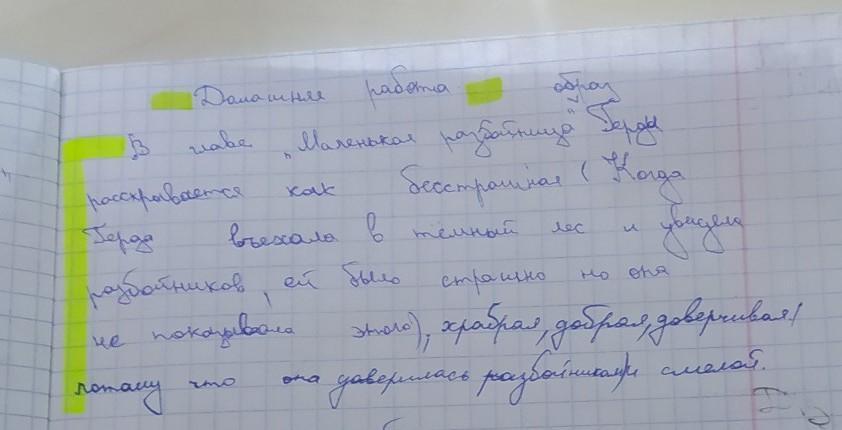 Домашняя работа
образ
В главе "Маленькая разбойница" Герды
раскрывается как бесстрашная (Когда
Герда въехала в тёмный лес и увидела
разбойников, ей было страшно но она
не показывала этого), храбрая, добрая, доверчивая/
потому что она доверилась разбойникам/и смелой.